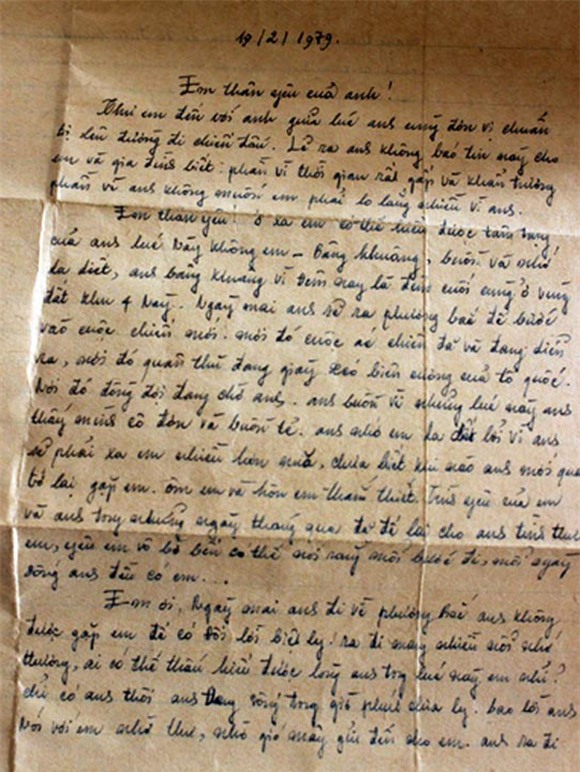 19/2/1979.
Em thân yêu của anh!
Thư em đến với anh giữa lúc anh cùng đơn vị chuẩn
bị lên đường đi chiến đấu. Lẽ ra anh không báo tin này cho
em và gia đình biết: phần vì thời gian rất gấp và khẩn trương
phần vì anh không muốn em phải lo lắng nhiều vì anh.
Em thân yêu! Ở xa em có thể hiểu được tâm trạng
của anh lúc này không em - Bâng khuâng, buồn và nhớ
da diết, anh bâng khuâng vì đêm nay là đêm cuối cùng ở vùng
đất khu 4 này. Ngày mai anh sẽ ra phương bắc để bước
vào cuộc chiến mới: nơi đó cuộc ác chiến đã và đang diễn
ra, nơi đó quân thù đang giày xéo biên cương của tổ quốc.
Nơi đó đồng đội đang chờ anh. anh buồn vì những lúc này anh
thấy mình cô đơn và buồn tẻ. anh nhớ em da diết bởi vì anh
sẽ phải xa em nhiều hơn nữa, chưa biết khi nào anh mới quay
trở lại gặp em. ôm em và hôn em thắm thiết. Tình yêu của em
và anh trong những ngày tháng qua đã để lại cho anh tình thương
em, yêu em vô bờ bến có thể nói rằng mỗi bước đi, mỗi ngày
sống anh đều có em...
Em ơi, Ngày mai anh đi về phương Bắc anh không
được gặp em để có đôi lời biệt ly! ra đi mang nhiều nỗi nhớ
thương, ai có thể thấu hiểu được lòng anh trong lúc này em nhỉ?
chỉ có anh thôi anh đang sống trong giờ phút chia ly. bao lời anh
Nói với em nhờ thư, nhờ gió mây gửi đến cho em. anh ra đi